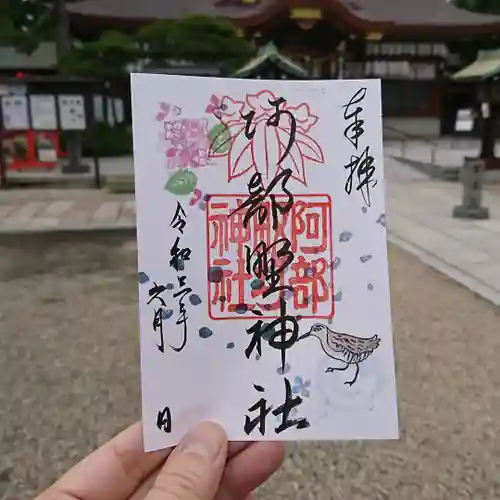 奉拝
阿部野神社
令和三年
六月 日
阿部
神社